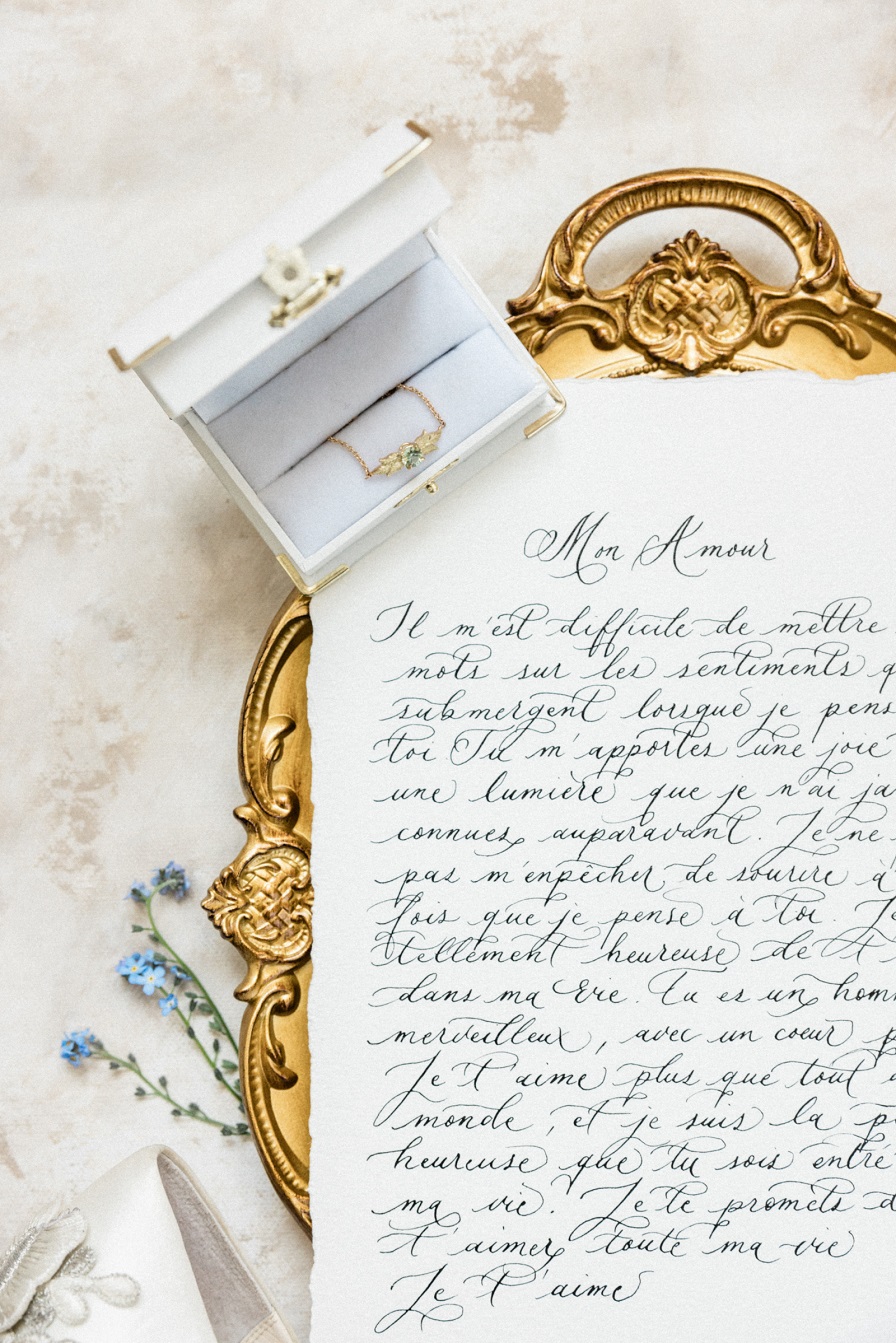 Mon Amour
Il m'est difficile de mettre
mots sur les sentiments q
submergent lorsque je pens
toi Tu m'apportes une joie
une lumière que je n'ai ja
connues auparavant. Je ne
pas m'enpêcher de sourire à
fois que je pense à toi. Je
tellement heureuse de t
dans ma vie. Tu es un hom
merveilleux, avec un coeur p
Je t'aime plus que tout a
monde, et je suis la p
heureuse que tu sois entré
ma vie. Je te promets d
t'aimer toute ma vie
Je t'aime